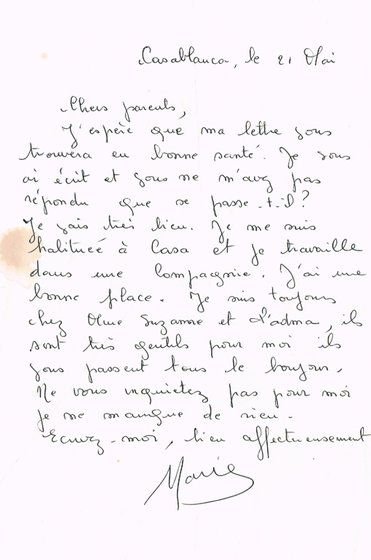 Casablanca, le 21 Mai
Chers parents,
J'espère que ma lettre vous
trouvera en bonne santé. Je vous
ai écrit et vous ne m'avez pas
répondu que se passe-t-il?
Je vais très bien. Je me suis
habituée à Casa et je travaille
dans une Compagnie. J'ai une
bonne place. Je suis toujours
chez Mme Suzanne et , ils
sont très gentils pour moi ils
vous passent tous le bonjour.
Ne vous inquietez pas pour moi
je ne manque de rien.
Ecrivez-moi, bien affectueusement
Marie